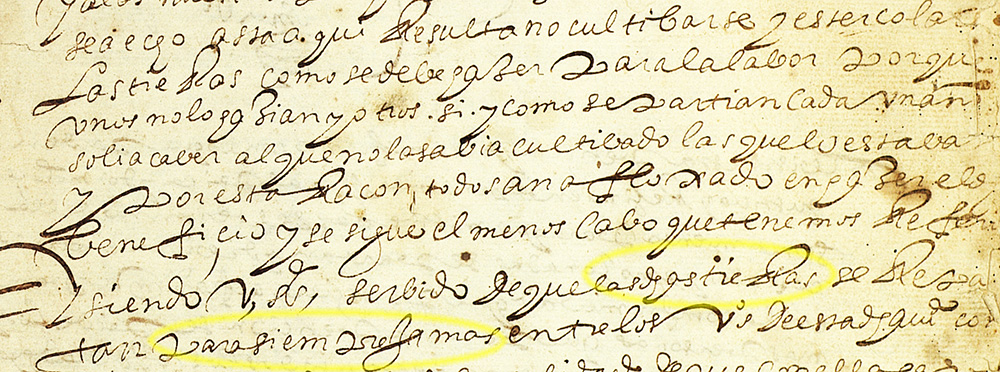 sea echo asta a qui Resulta no cultibarse y estercolar
Las tieRas como se debe hazer para la labor porque
unos no lo hazian y otros si y como se partian Cada un año
solia caber al que no las abia cultibado las que lo estaba
y por esta Racon, todos an afloxado en hazer el
beneficio y se sigue el menos cabo que tenemos Refer
y siendo V. Sᵃ, serbido de que las dhas tieRas se Repa
tan para siempre Jamas entre los vºs De esta dha